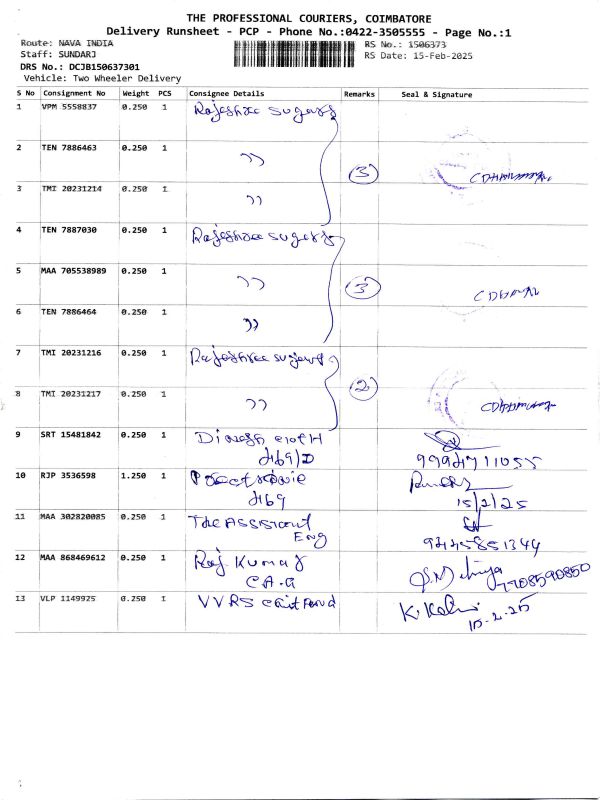 THE PROFESSIONAL COURIERS, COIMBATORE
Delivery Runsheet - PCP - Phone No.:0422-3505555 - Page No.:1
Route: NAVA INDIA
RS No.: 1506373
Staff: SUNDARJ
RS Date: 15-Feb-2025
DRS No.: DCJB150637301
Vehicle: Two Wheeler Delivery
S No Consignment No Weight PCS Consignee Details Remarks Seal & Signature
1 VPM 5558837 0.250 1 Rajeshree sugars
2 TEN 7886463 0.250 1 ,,
3
3 TMI 20231214 0.250 1 ,,
4 TEN 7887030 0.250 1 Rajeshree sugars
5 MAA 705538989 0.250 1 ,,
3
6 TEN 7886464 0.250 1 ,,
7 TMI 20231216 0.250 1 Rajeshree sugars
2
8 TMI 20231217 0.250 1 ,,
9 SRT 15481842 0.250 1 Dinesh
10 RJP 3536598 1.250 1
15/2/25
11 MAA 302820085 0.250 1 The Assistant
Eng
12 MAA 868469612 0.250 1 Raj Kumar
C.A.G
7708590850
13 VLP 1149925 0.250 1 VVRS
15-2-25